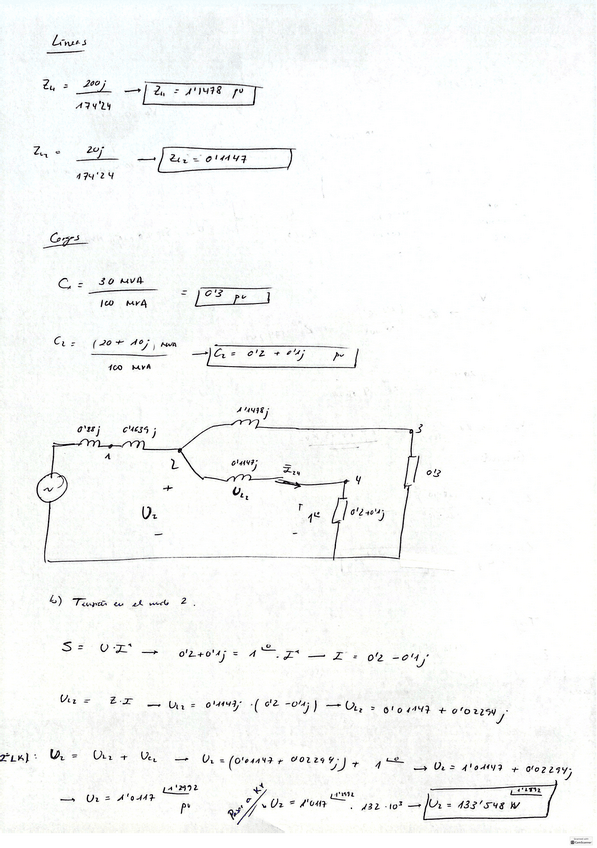 Líneas
Z_L1 = 200j / 174'24 → Z_L1 = 1'1478 pu
Z_L2 = 20j / 174'24 → Z_L2 = 0'1147
Cargas
C_1 = 30 MVA / 100 MVA = 0'3 pu
C_2 = (20 + 10j) MVA / 100 MVA → C_2 = 0'2 + 0'1j pu
1'1478j
0'1639j
3
1
2
0'1147j
I_24
4
0'3
U_L2
+
U_2
1
0'2+0'1j
-
-
b) Tensión en el nudo 2.
S = U·I* → 0'2+0'1j = 1∠0 · I* → I = 0'2 - 0'1j
U_L2 = Z·I → U_L2 = 0'1147j · (0'2 - 0'1j) → U_L2 = 0'01147 + 0'02294j
2ª LK): U_2 = U_L2 + U_C2 → U_2 = (0'01147 + 0'02294j) + 1∠0 → U_2 = 1'01147 + 0'02294j
→ U_2 = 1'0117 ∠1'2992 pu
Paso a KV
U_2 = 1'0117 ∠1'2992 · 132·10³ → U_2 = 133'548 ∠1'2992
CamScanner